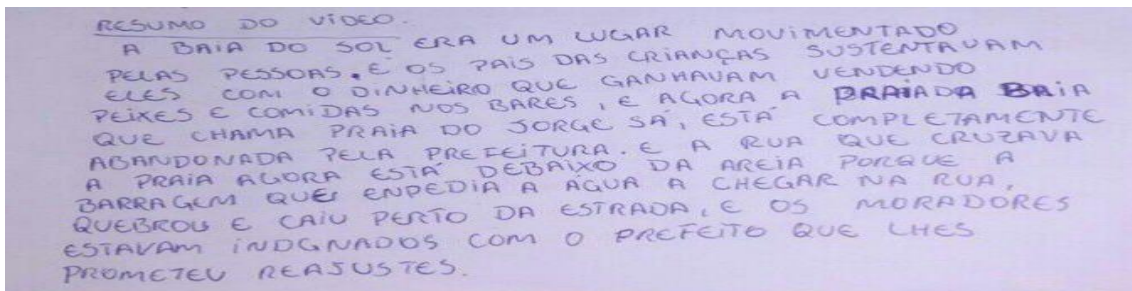 RESUMO DO VÍDEO.
A BAIA DO SOL ERA UM LUGAR MOVIMENTADO
PELAS PESSOAS. E OS PAIS DAS CRIANÇAS SUSTENTAVAM
ELES COM O DINHEIRO QUE GANHAVAM VENDENDO
PEIXES E COMIDAS NOS BARES, E AGORA A PRAIA DA BAIA
QUE CHAMA PRAIA DO JORGE SÁ, ESTÁ COMPLETAMENTE
ABANDONADA PELA PREFEITURA. E A RUA QUE CRUZAVA
A PRAIA AGORA ESTÁ DEBAIXO DA AREIA PORQUE A
BARRAGEM QUE ENPEDIA A ÁGUA A CHEGAR NA RUA,
QUEBROU E CAIU PERTO DA ESTRADA, E OS MORADORES
ESTAVAM INDGNADOS COM O PREFEITO QUE LHES
PROMETEU REAJUSTES.